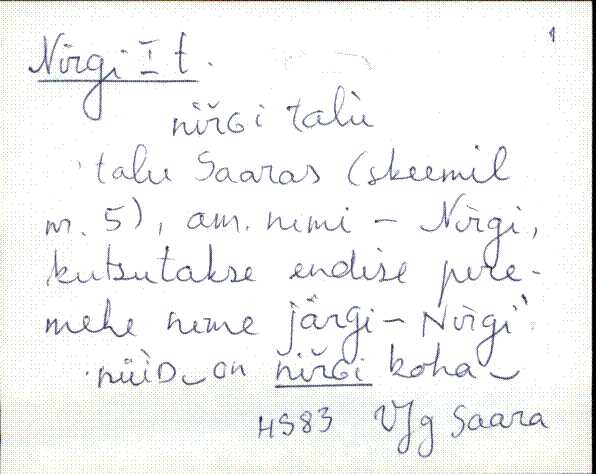 1
Nõrgi I t.
niřGi talù
talu Saaras (skeemil
nr. 5), am. nimi – Nõrgi,
kutsutakse endise pere-
mehe nime järgi – Nõrgi
nüiD on niřGi koha
HS83 VJg Saara